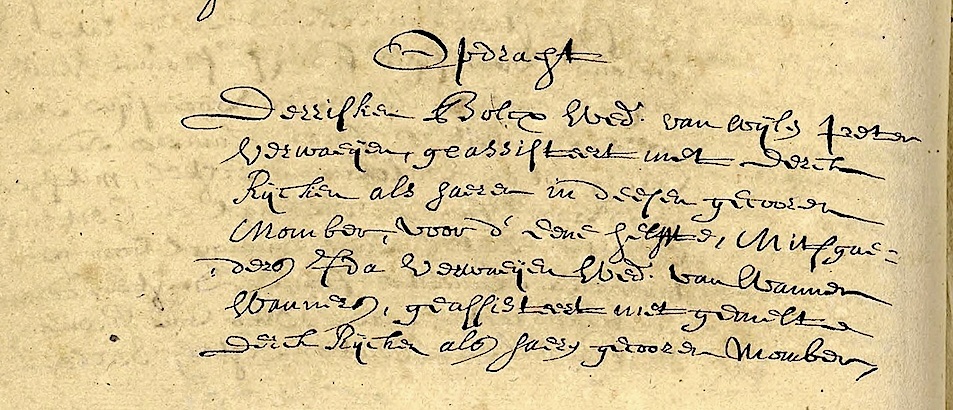 Opdracht
Derrisken Bolcx Wed: van wijls Peter
Verwaeijen, geassisteert met Derck
Rijcken als haeren in deesen gecooren
Momber, voor d' eene helffte, Mitsgae=
ders Ida Verwaeijen Wed: van Wanner
Wanners, geassisteert met gemelte
Derck Rijcken als haers gecooren Momber,